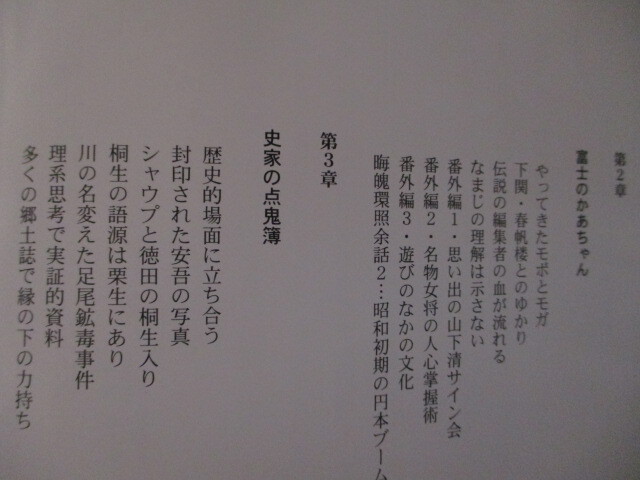 第2章
富士のかあちゃん
やってきたモボとモガ
下関・春帆楼とのゆかり
伝説の編集者の血が流れる
なまじの理解は示さない
番外編1・思い出の山下清サイン会
番外編2・名物女将の人心掌握術
番外編3・遊びのなかの文化
晦魄環照余話2…昭和初期の円本ブーム
第3章
史家の点鬼簿
歴史的場面に立ち合う
封印された安吾の写真
シャウプと徳田の桐生入り
桐生の語源は栗生にあり
川の名変えた足尾鉱毒事件
理系思考で実証的資料
多くの郷土誌で縁の下の力持ち